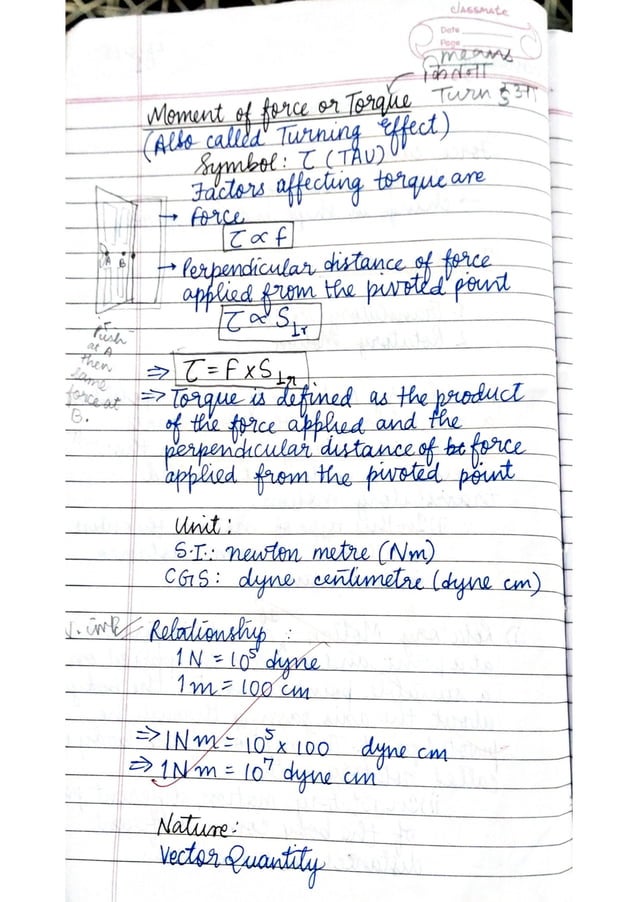 classmate
Date
Page
means
कितना
Turn हुआ
Moment of force or Torque
(Also called Turning effect)
Symbol: τ (TAU)
Factors affecting torque are
→ force
τ ∝ f
→ Perpendicular distance of force
applied from the pivoted point
τ ∝ S⊥r
A B
Push
at A
then
same
force at
B.
⇒ τ = F × S⊥r.
⇒ Torque is defined as the product
of the force applied and the
perpendicular distance of force
applied from the pivoted point
Unit:
S.I.: newton metre (Nm)
CGS: dyne centimetre (dyne cm)
V. imp Relationship :
1N = 10⁵ dyne
1m = 100 cm
⇒ 1Nm = 10⁵ × 100 dyne cm
⇒ 1Nm = 10⁷ dyne cm
Nature:
Vector Quantity